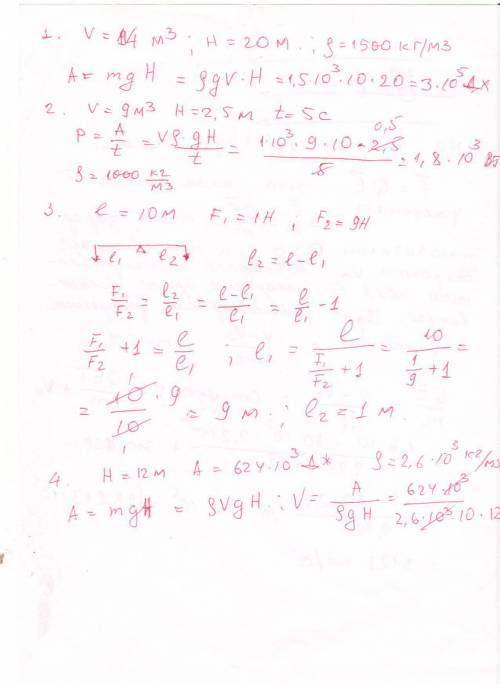 1. V = 14 м³ ; H = 20 м. ; ρ = 1500 кг/м3
A = mgH = ρgV·H = 1,5·10³·10·20 = 3·10⁵ Дж
2. V = 9м³ H = 2,5 м t = 5с
P = A/t = Vρ·gH/t = 1·10³·9·10·2,5/5 = 1,8·10³ Вт
0,5
ρ = 1000 кг/м3
3. l = 10м F₁ = 1Н ; F₂ = 9Н
l₁ l₂ l₂ = l - l₁
F₁/F₂ = l₂/l₁ = (l-l₁)/l₁ = l/l₁ - 1
F₁/F₂ + 1 = l/l₁ ; l₁ = l/(F₁/F₂ + 1) = 10/(1/9 + 1) =
= 10·9/10 = 9 м. ; l₂ = 1 м.
4. H = 12м A = 624·10³ Дж ρ = 2,6·10³ кг/м3
A = mgH = ρVgH ; V = A/ρgH = 624·10³/2,6·10³·10·12